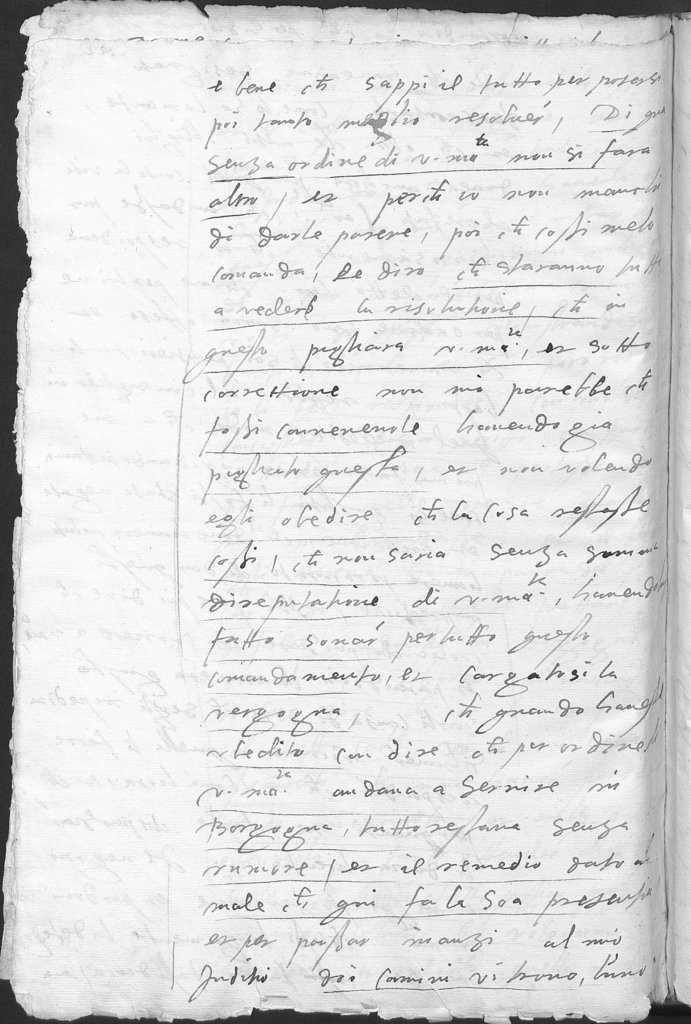 e bene ch sappi il tutto per potersi
poi tanto meglio resolver, Di qui
senza ordine di v. ma.ta non si fara
altro, et perch io non manchi
di darle parere, poi ch cossi melo
comanda, le diro ch staranno tutti
a vedere la risolutione, ch in
questo pigliara v. ma.ta, et sotto
correttione non mi parebbe ch
fossi convenevole havendo gia
pigliato questa, et non volendo
egli obedire ch la cosa restasse
cossi, ch non saria senza summa
disreputatione di v. ma.ta, havendo
fatto sonar per tutto questo
comandamento, et cargatosi la
vergogna, ch quando havessi
ubedito con dire ch per ordine di
v. ma.ta andava a servire in
Borgogna, tutto restava senza
rumore, et il remedio dato al
male ch qui fa la sua presentia
et per passar inanzi al mio
Juditio doi camini vi trovo, l'uno